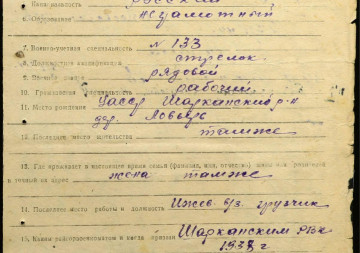 5. Национальность русский
6. Образование неграмотный
7. Военно-учетная специальность № 133
8. Должностная квалификация стрелок
9. Военное звание рядовой
10. Гражданская специальность рабочий
11. Место рождения Уасср Шарканский р-н
дер.
12. Последнее место жительства там же
13. Где проживает в настоящее время семья (фамилия, имя, отчество)
и точный их адрес жена там же
14. Последнее место работы и должность Ижев. грузчик
15. Каким райгорвоенкоматом и когда призван Шарканским РВК